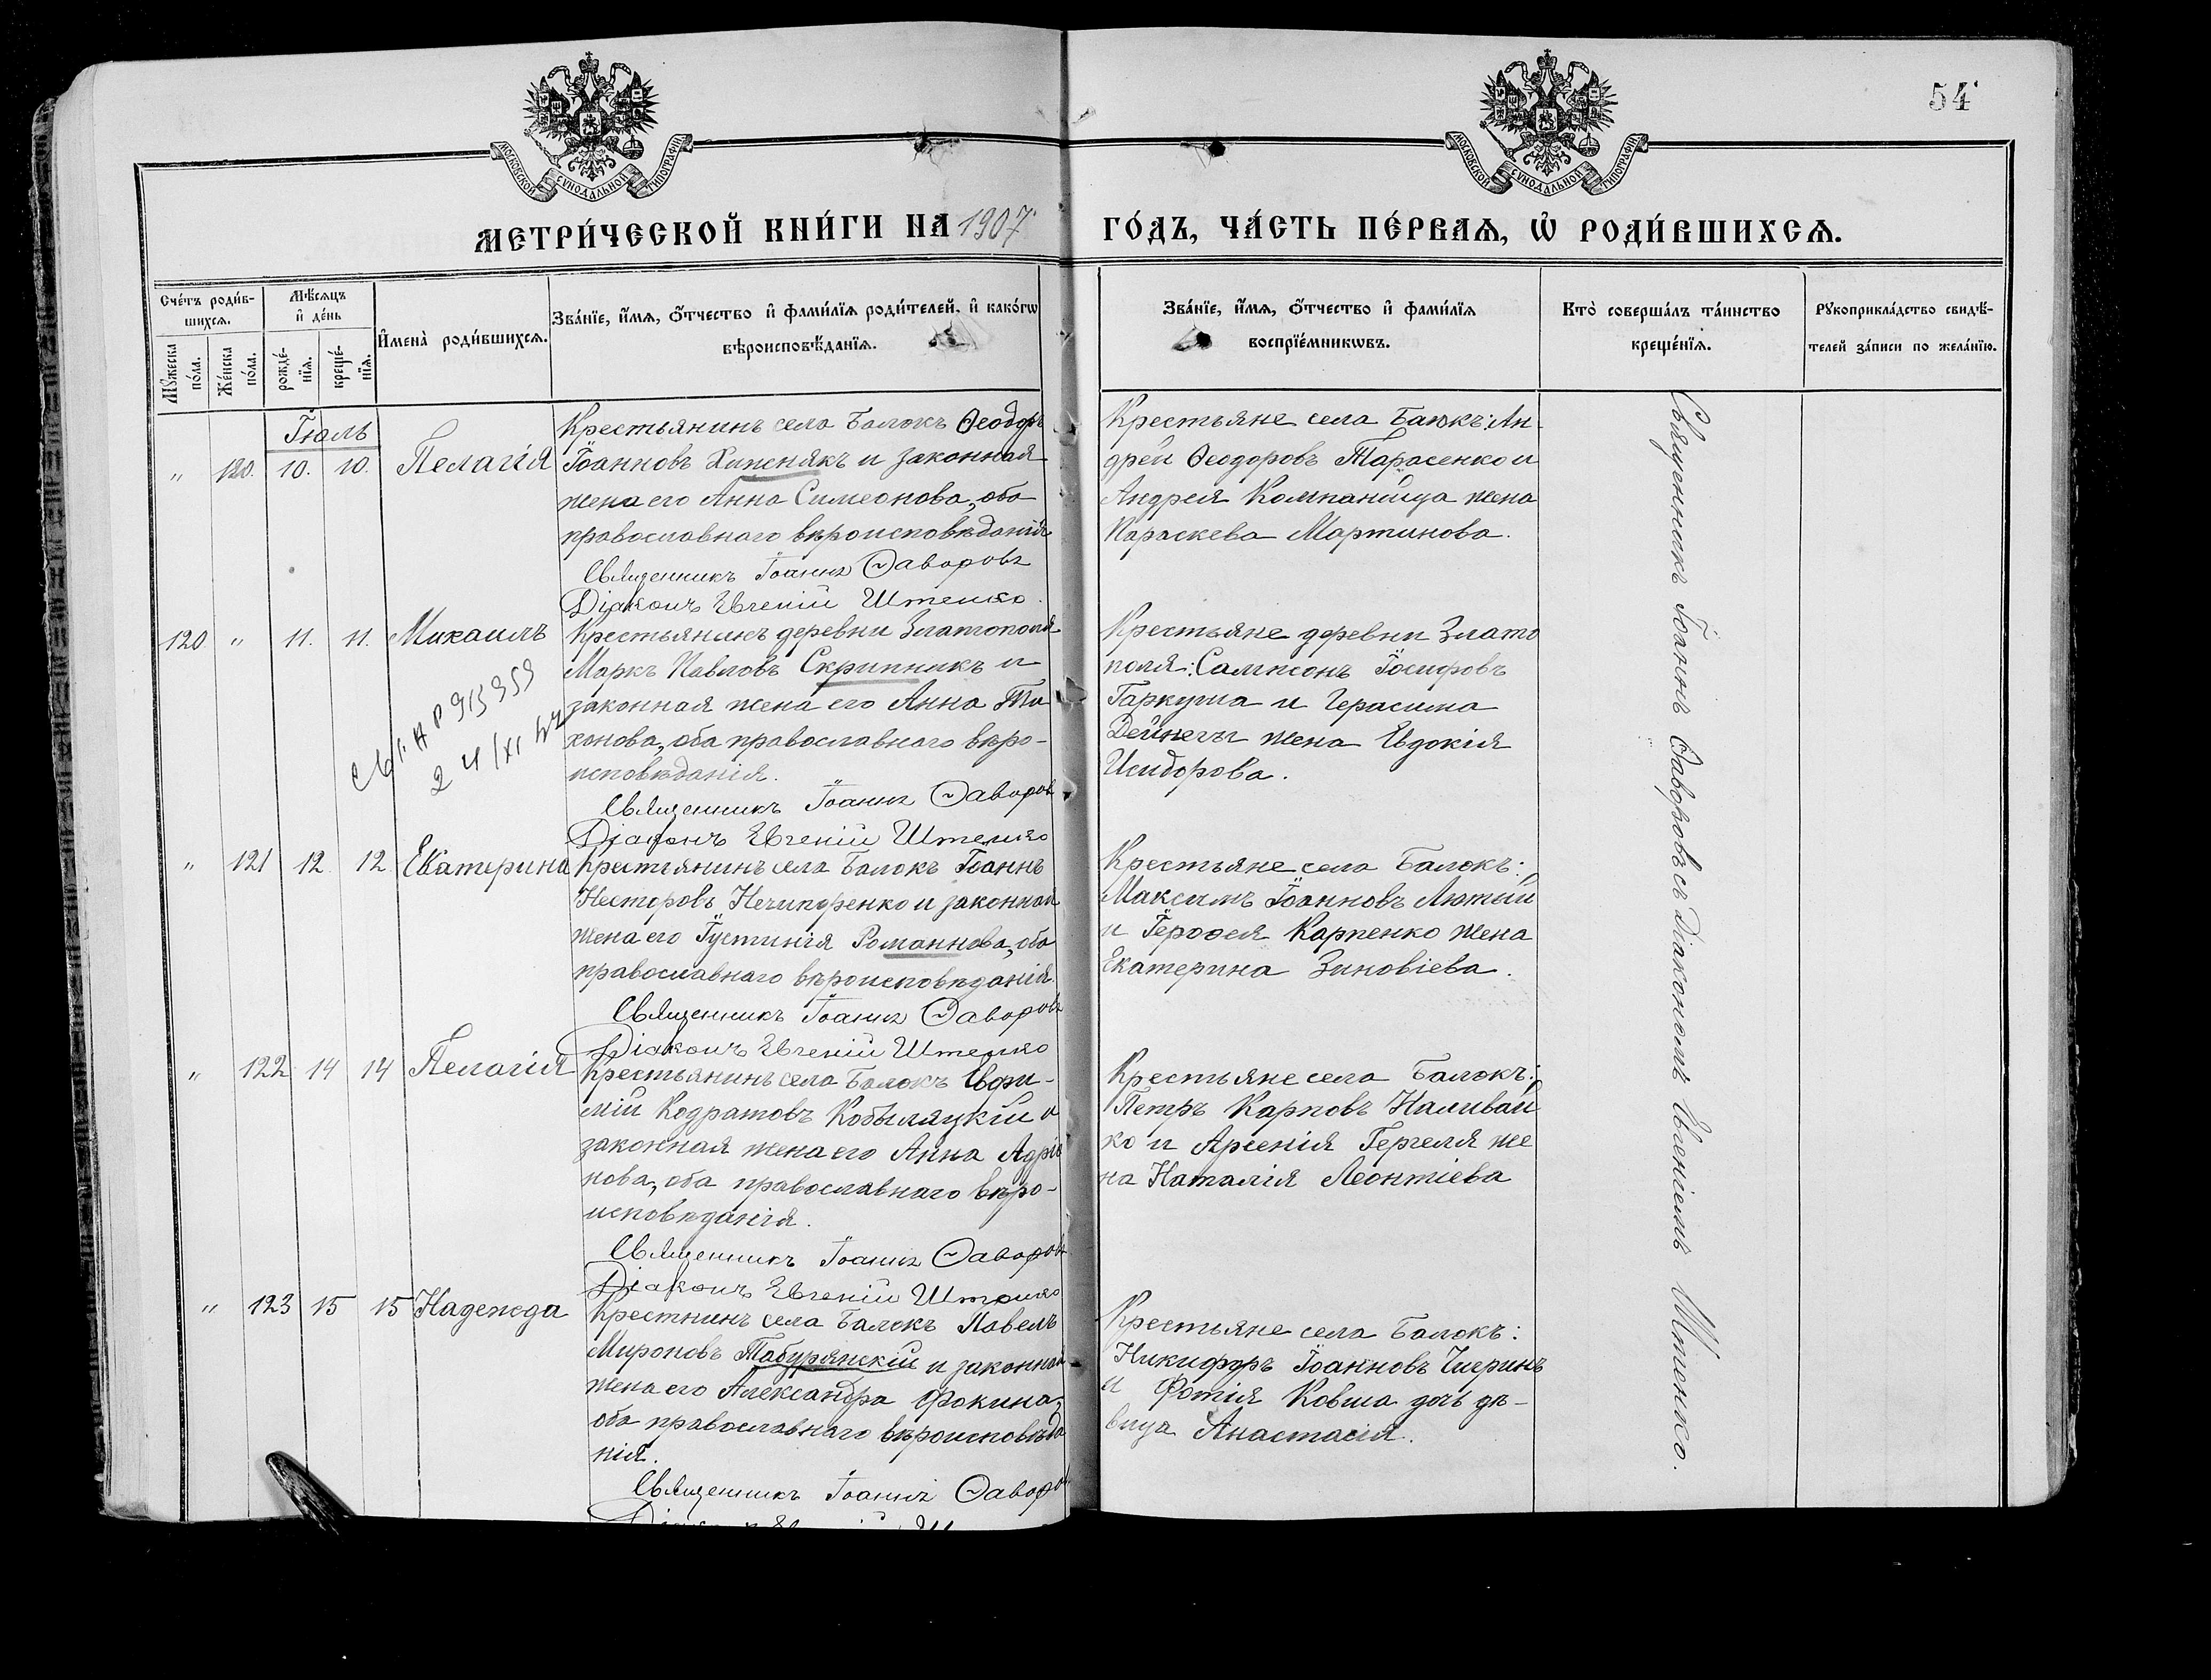 54
МОСКОВСКОЙ СУНОДАЛЬНОЙ ТИПОГРАФІИ
МОСКОВСКОЙ СУНОДАЛЬНОЙ ТИПОГРАФІИ
МЕТРИ́ЧЕСКОЙ КНИ́ГИ НА 1907
ГО́ДЪ, ЧА́СТЬ ПЕ́РВАѦ, Ѽ РОДИ́ВШИХСѦ.
Счéтъ роди́в-
шихсѧ.
Мꙋжеска по́ла.
Же́нска по́ла.
Мѣ́сѧцъ и де́нь
рожде́-
нїѧ.
креще́-
нїѧ.
И҆мена̀ роди́вшихсѧ.
Зва́нїе, и҆́мѧ, ѻ҆́тчество и҆ фами́лїѧ роди́телей, и҆ како́гѡ
вѣроисповѣ́данїѧ.
Зва́нїе, и҆́мѧ, ѻ҆́тчество и҆ фами́лїѧ
воспрїе́мникѡвъ.
Кто̀ соверша́лъ та́инство
креще́нїѧ.
Рꙋкоприкла́дство свидѣ́-
телей за́писи по жела́нїю.
Іюль
" 120. 10. 10. Пелагія
Крестьянинъ села Балокъ Ѳеодоръ
Іоанновъ Хипенякъ и законная
жена его Анна Симеонова, оба
православнаго вѣроисповѣданія
Священникъ Іоаннъ Ѳаворовъ
Діаконъ Евгеній Штенко.
Крестьяне села Балокъ: Ан-
дрей Ѳеодоровъ Тарасенко и
Андрея Компанійца жена
Параскева Мартинова.
120 " 11. 11. Михаилъ
Крестьянинъ деревни Златополя
Маркъ Павловъ Скрипникъ и
законная жена его Анна Ти
хонова, оба православнаго вѣро-
исповѣданія.
Священникъ Іоаннъ Ѳаворовъ
Діаконъ Евгеній Штенко
915959
Крестьяне деревни Злато
поля: Сампсонъ Іосифовъ
Гаркуша и Герасима
Дейнеги жена Евдокія
Исидорова.
" 121 12 12 Екатерина
Крестьянинъ села Балокъ Іоаннъ
Несторовъ Нечипоренко и законная
жена его Іустинія Романнова, оба
православнаго вѣроисповѣданія.
Священникъ Іоаннъ Ѳаворовъ
Діаконъ Евгеній Штенко
Крестьяне села Балокъ:
Максимъ Іоанновъ Лютый
и Іероѳея Карпенко жена
Екатерина Зиновіева.
" 122 14 14 Пелагія
Крестьянинъ села Балокъ Евфи-
мій Кодратовъ Кобыляцкій и
законная жена его Анна Адріа
нова, оба православнаго вѣро-
исповѣданія.
Священникъ Іоаннъ Ѳаворовъ
Діаконъ Евгеній Штенко
Крестьяне села Балокъ:
Петръ Карповъ Наливай
ко и Арсенія Гергеля же
на Наталія Леонтіева
" 123 15 15 Надежда
Крестнинъ села Балокъ Павелъ
Мироновъ Табурянскій и законная
жена его Александра Фокина,
оба православнаго вѣроисповѣда
нія.
Священникъ Іоаннъ Ѳаворов
Крестьяне села Балокъ:
Никифоръ Іоанновъ Чигринъ
и Фотія Ковша дочь дѣ-
вица Анастасія.
Священникъ Іоаннъ Ѳаворовъ съ Діакономъ Евгеніемъ Штенко.